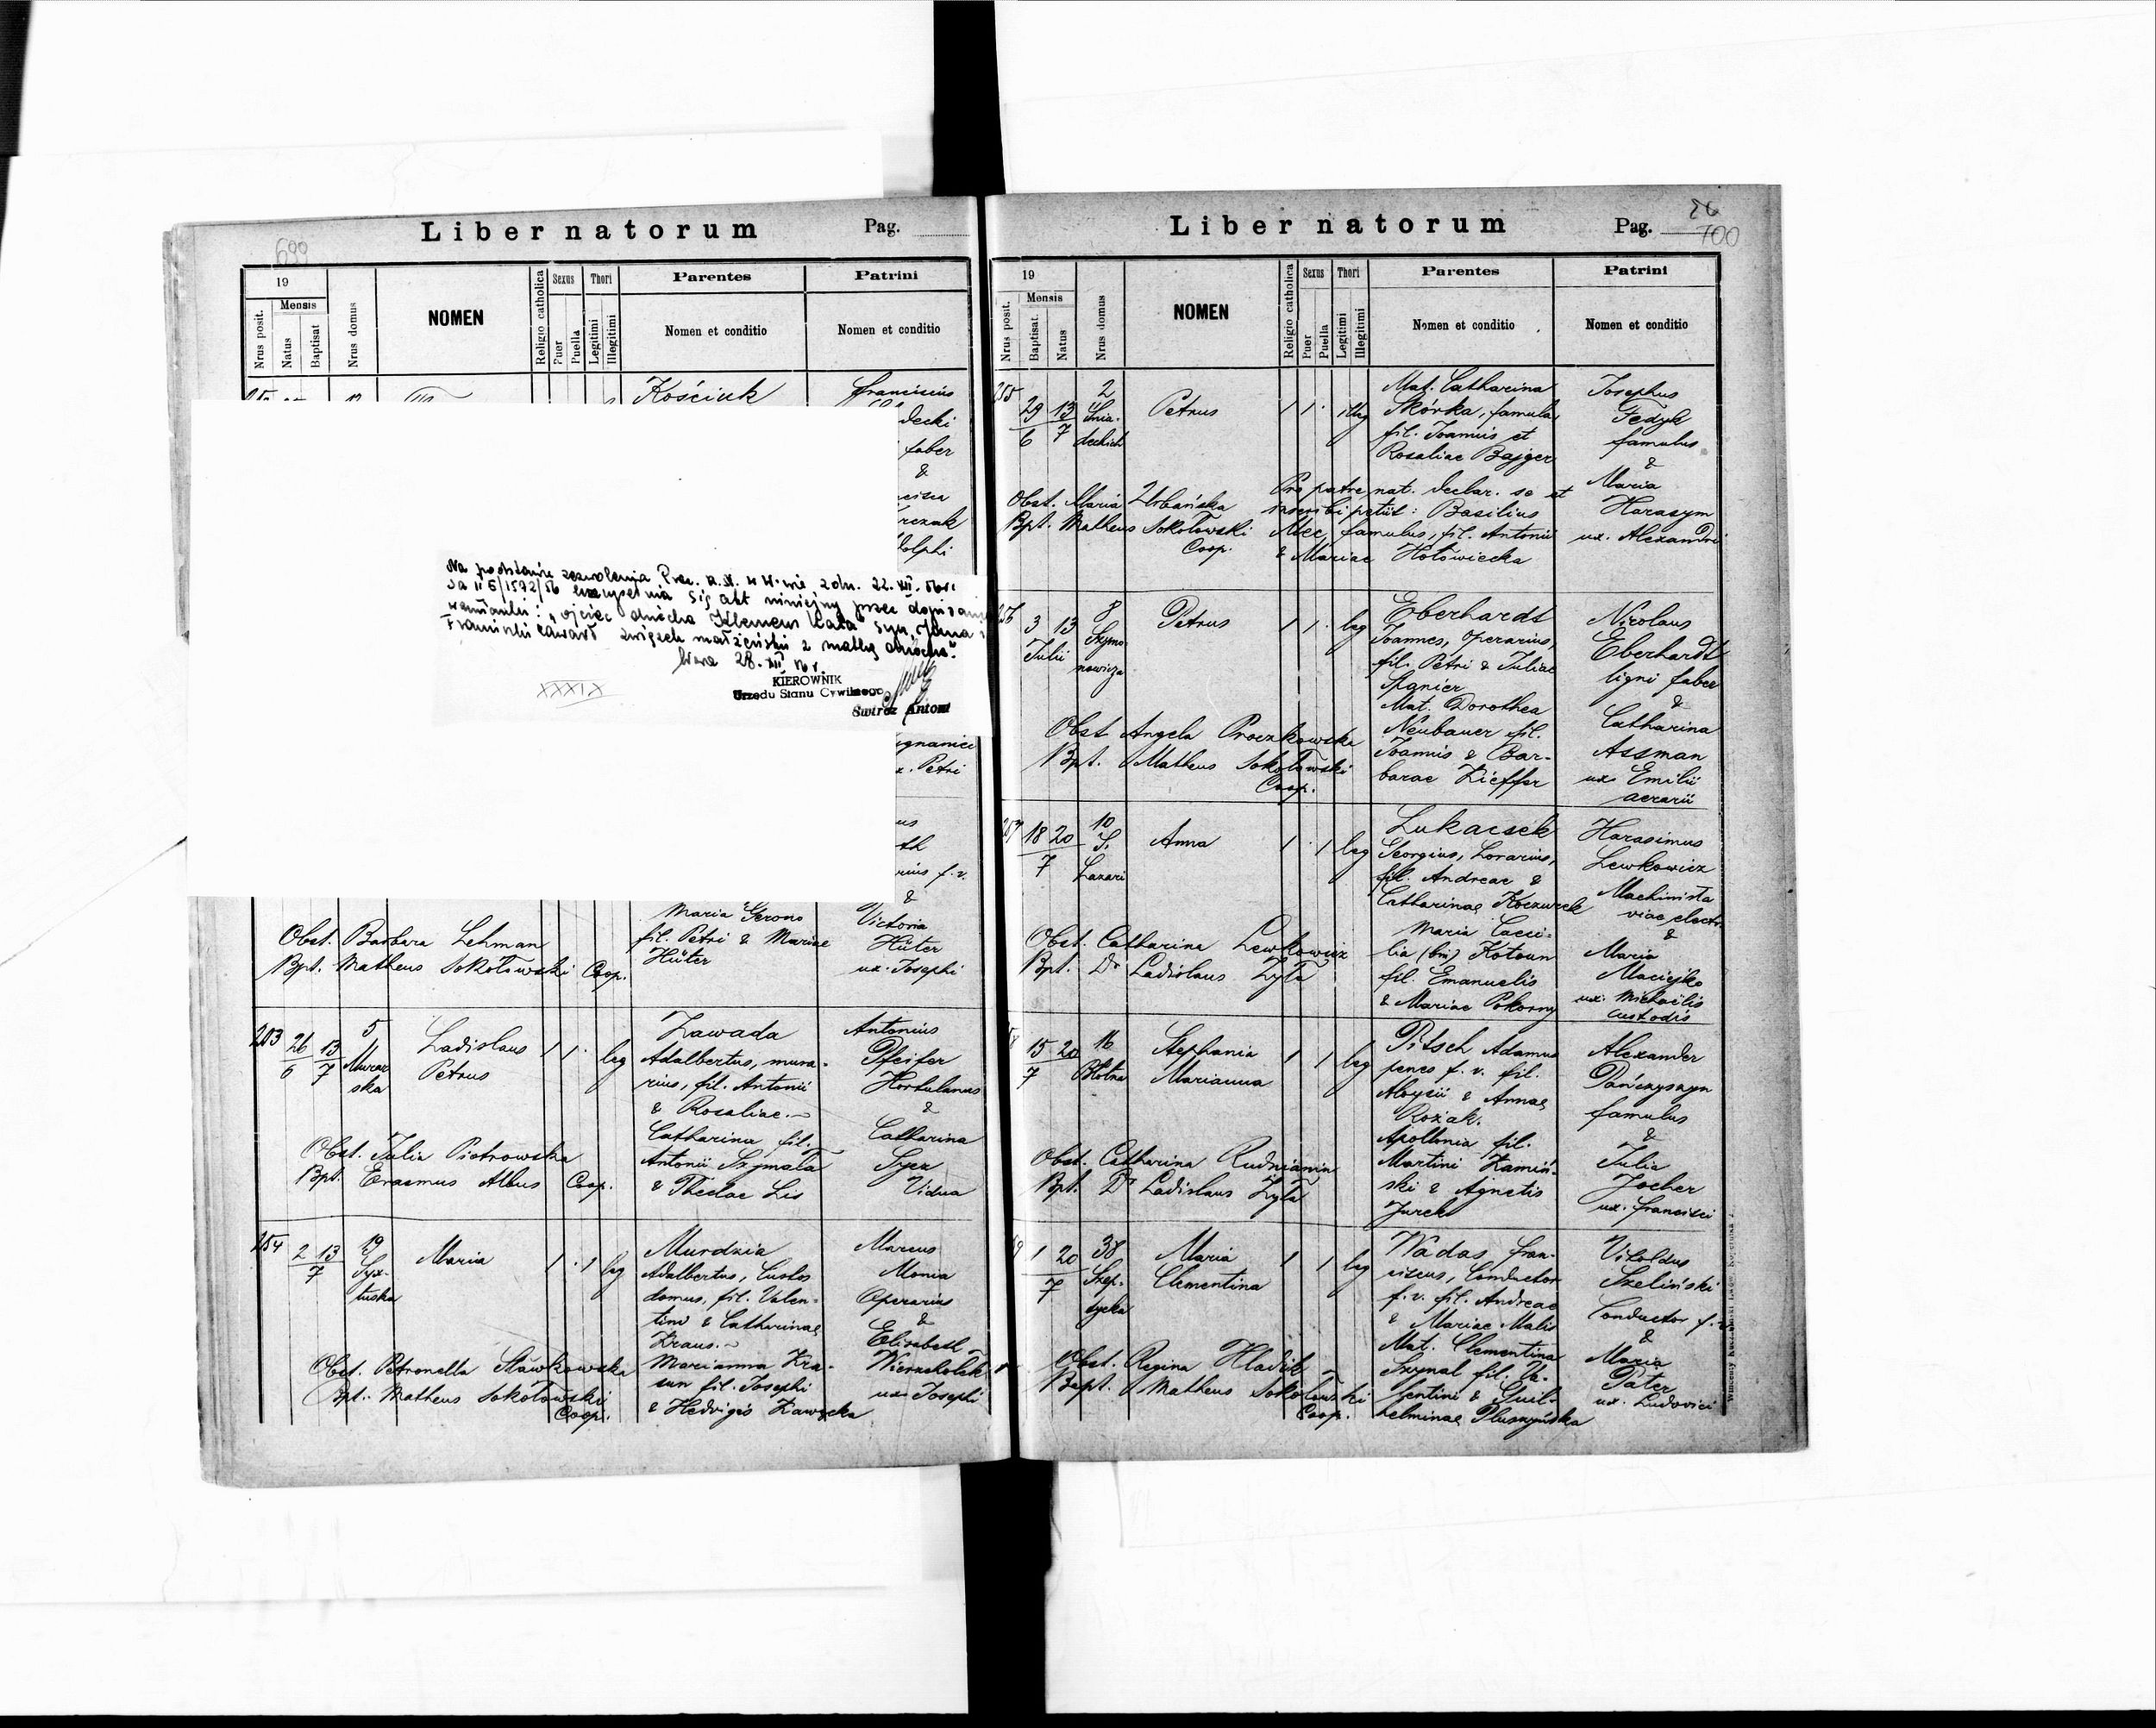 Liber natorum
Pag.
699
19
Mensis
Nrus posit.
Natus
Baptisat
Nrus domus
NOMEN
Religio catholica
Sexus
Puer
Puella
Thori
Legitimi
Illegitimi
Parentes
Nomen et conditio
Patrini
Nomen et conditio
Kościuk
Franciscus
decki
faber
&
rczak
dolphi
Na podstawie zezwolenia Prez. R.N. w W-wie z dn. 22.XII.56 r.
uzupełnia się akt niniejszy przez dopisanie
wzmianki: "ojciec dziecka Klemens syn Jana i
Franciszki zawarł związek małżeński z matką dziecka."
28.XII 56 r.
KIEROWNIK
Urzędu Stanu Cywilnego
Antoni
XXXIX
x. Petri
us
th
rius f.v.
&
Maria Gerono
fil. Petri & Mariae
Hüter
Victoria
Hüter
ux. Josephi
Obst. Barbara Lehman
Bpt. Matheus Sokołowski Coop.
253
26 13
6 7
5
Murar
ska
Ladislaus
Petrus
1 1 leg
Zawada
Adalbertus, mura-
rius, fil. Antonii
& Rosaliae.
Catharina fil.
Antonii Szymała
& Theclae Lis
Antonius
Pfeifer
Hortulanus
&
Catharina
Syez
Vidua
Obst. Julia Piotrowska
Bpt. Erasmus Albus Coop.
254
2 13
7
19
Syx-
tuska
Maria
1 1 leg
Murdzia
Adalbertus, Custos
domus, fil. Valen-
tini & Catharinae
Kraus.
Marianna Kra-
sun fil. Josephi
& Hedvigis Zawrzka
Marcus
Monia
Operarius
&
Elisabeth
Wierzchołek
ux. Josephi
Obst. Petronella Sławkowska
Bpt. Matheus Sokołowski
Coop.
Liber natorum
Pag.
26
700
19
Mensis
Nrus posit.
Baptisat.
Natus
Nrus domus
NOMEN
Religio catholica
Sexus
Puer
Puella
Thori
Legitimi
Illegitimi
Parentes
Nomen et conditio
Patrini
Nomen et conditio
255
29 13
6 7
2
Śnia-
deckich
Petrus
1 1 illeg
Mat. Catharina
Skórka, famula
fil. Joannis et
Rosaliae Bajger
Josephus
Fedyk
famulus
&
Maria
Harasym
ux. Alexandri
Pro patre nat. declar. se et
inscribi petiit: Basilius
Mec, famulus, fil. Antonii
& Mariae Hołowiecka
Obst. Maria Urbańska
Bpt. Matheus Sokołowski
Coop.
256
3 13
Julii
8
Szymo
nowicza
Petrus
1 1 leg
Eberhardt
Joannes, operarius,
fil. Petri & Juliae
Spanier
Mat. Dorothea
Neubauer fil.
Joannis & Bar-
barae Kieffer
Nicolaus
Eberhardt
ligni faber
&
Catharina
Assman
ux. Emilii
aerarii
Obst Angela Proczkowska
Bpt. Matheus Sokołowski
Coop.
257
18 20
7
10
S.
Lazari
Anna
1 1 leg
Lukacsek
Georgius, Lorarius,
fil. Andreae &
Catharinae Koczurek
Maria Caeci-
lia (bn) Kotoun
fil. Emanuelis
& Mariae Pokorny
Harasimus
Lewkowicz
Machinista
viae electr.
&
Maria
Maciejko
ux. Michaëlis
custodis
Obst. Catharina Lewkowicz
Bpt. Dr Ladislaus Zyła
15 20
7
16
Błotna
Stephania
Marianna
1 1 leg
Pitsch Adamus
penes f. v. fil.
Aloysii & Annae
Rożak.
Apollonia fil.
Martini Kamiń-
ski & Agnetis
Jurek
Alexander
Pańczyszyn
famulus
&
Julia
Jocher
ux. Francisci
Obst. Catharina Rudnianin
Bpt. Dr Ladislaus Zyła
1 20
7
38
Szep-
tycka
Maria
Clementina
1 1 leg
Wadas Fran-
ciscus, Conductor
f. v. fil. Andreae
& Mariae Malis
Mat. Clementina
Szymal fil. Va-
lentini & Guil-
helminae Pluszyńska
Vitoldus
Szeliński
Conductor f. v.
&
Maria
Pater
ux. Ludovici
Obst. Regina Hladik
Bapt. Matheus Sokołowski
Coop.